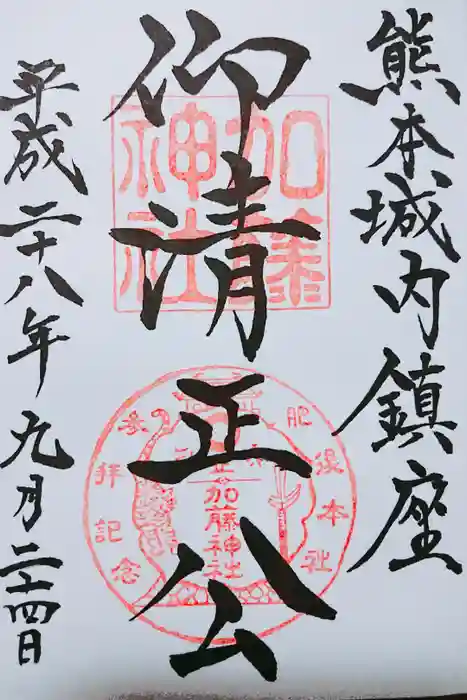 熊本城内鎮座
仰清正公
平成二十八年九月二十四日
加藤神社
肥後本社
参拝記念
加藤神社